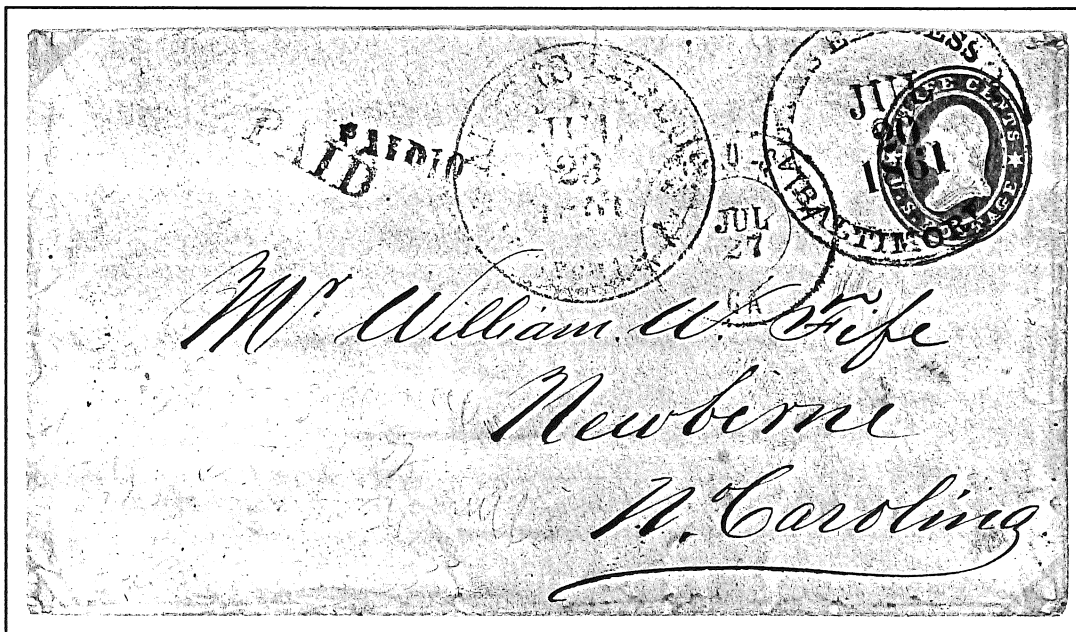 PAID
PAID 10
JUL
23
JUL
27
GA
EXPRESS
JUL
20
1861
BALTIMORE
U.S. POSTAGE
Mr William. W. Fife
Newberne
N. Carolina